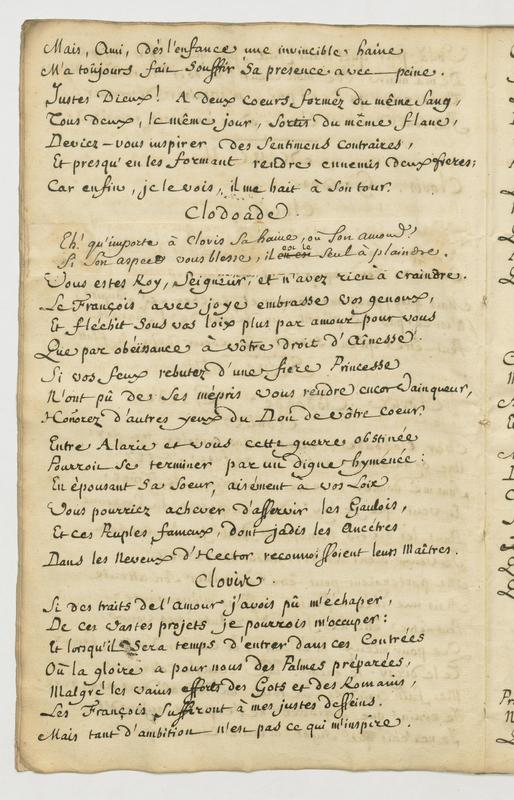 Mais, Ami, dés l'enfance une invincible haine
M'a toûjours fait souffrir sa presence avec peine.
Justes Dieux! A deux coeurs formez du même sang,
Tous deux, le même jour, sortis du même flanc,
Deviez-vous inspirer des sentimens contraires,
Et presqu'en les formant rendre ennemis deux freres;
Car enfin, je le vois, il me hait à son tour.
Clodoade.
Eh! qu'importe à Clovis sa haine, où son amour?
Si son aspect vous blesse, il est le seul à plaindre.
Vous estes Roy, Seigneur, et n'avez rien à craindre.
Le François avec joye embrasse vos genoux,
Et fléchit sous vos loix plus par amour pour vous
Que par obéissance à vôtre droit d'Aînesse.
Si vos feux rebutez d'une fiere Princesse
N'ont pû de ses mépris vous rendre encor vainqueur,
Honorez d'autres yeux du Don de vôtre coeur.
Entre Alaric et vous cette guerre obstinée
Pourroit se terminer par un digne hyménée:
En épousant sa soeur, aisément à vos Loix
Vous pourriez achever d'asservir les Gaulois,
Et ces Peuples fameux, dont jadis les Ancêtres
Dans les Neveux d'Hector reconnoissoient leurs Maîtres.
Clovis.
Si des traits de l'amour j'avois pû m'échaper,
De ces vastes projets je pourrois m'occuper:
Et lorsqu'il sera temps d'entrer dans ces Contrées
Où la gloire a pour nous des Palmes préparées,
Malgré les vains efforts des Gots et des Romains,
Les François suffiront à mes justes desseins.
Mais tant d'ambition n'est pas ce qui m'inspire.